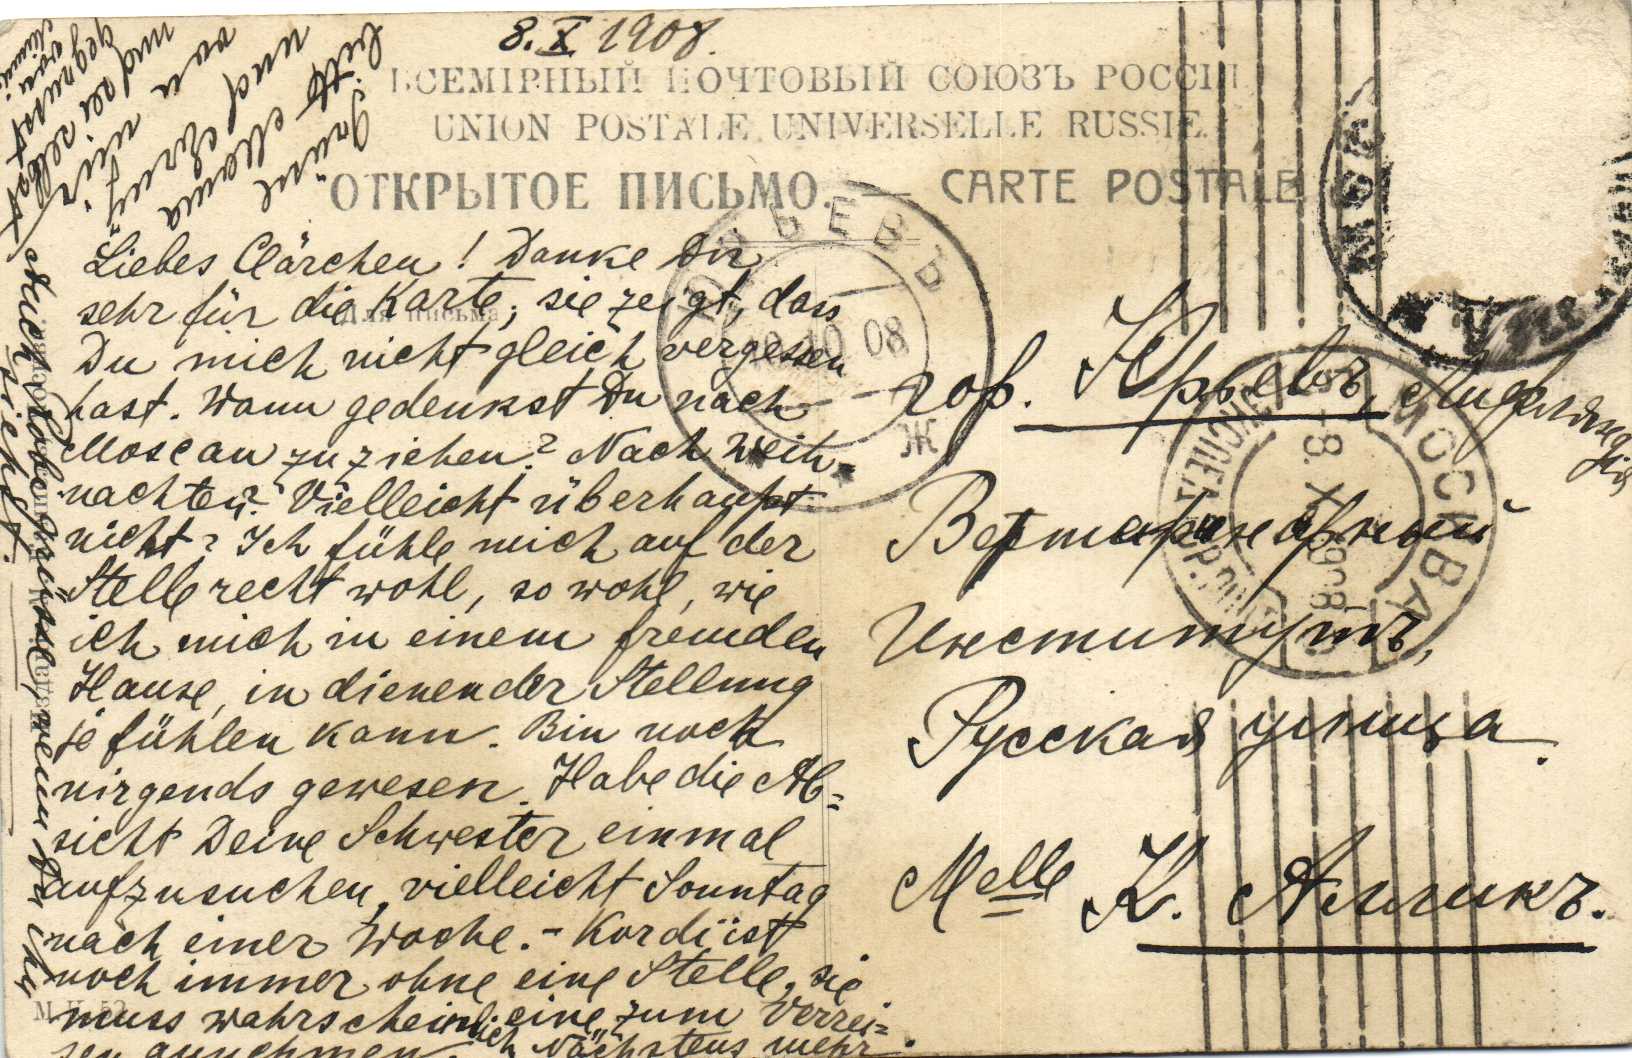 8. X. 1908.
ВСЕМІРНЫЙ ПОЧТОВЫЙ СОЮЗЪ РОССІЯ
UNION POSTALE UNIVERSELLE RUSSIE.
ОТКРЫТОЕ ПИСЬМО. — CARTE POSTALE
Для письма
Liebes Clärchen! Danke Dir
sehr für die Karte; sie zeigt, dass
Du mich nicht gleich vergessen
hast. Wann gedenkst Du nach
Moscau zu ziehen? Nach Weih-
nachten? Vielleicht überhaupt
nicht? Ich fühle mich auf der
Stelle recht wohl, so wohl, wie
ich mich in einem fremden
Hause, in dienender Stellung
je fühlen kann. Bin noch
nirgends gewesen. Habe die Ab=
sicht Deine Schwester einmal
aufzusuchen, vielleicht Sonntag
nach einer Woche. – Kordi ist
noch immer ohne eine Stelle, sie
muss wahrscheinlich eine zum Verrei=
sen annehmen. Nächstens mehr.
Grüsse
bitte Mama
und Erny
von mir
und sei selbst
gegrüsst
von
Auch Bob Grüsse, wenn Du ihn
siehst.
гор. Юрьевъ, Лифляндія
Ветеринарный
Институтъ,
Русская улица.
Melle К. Алликъ.
ЮРЬЕВЪ
10 08
Ж
МОСКВА
8. X 1908
МОСКВА